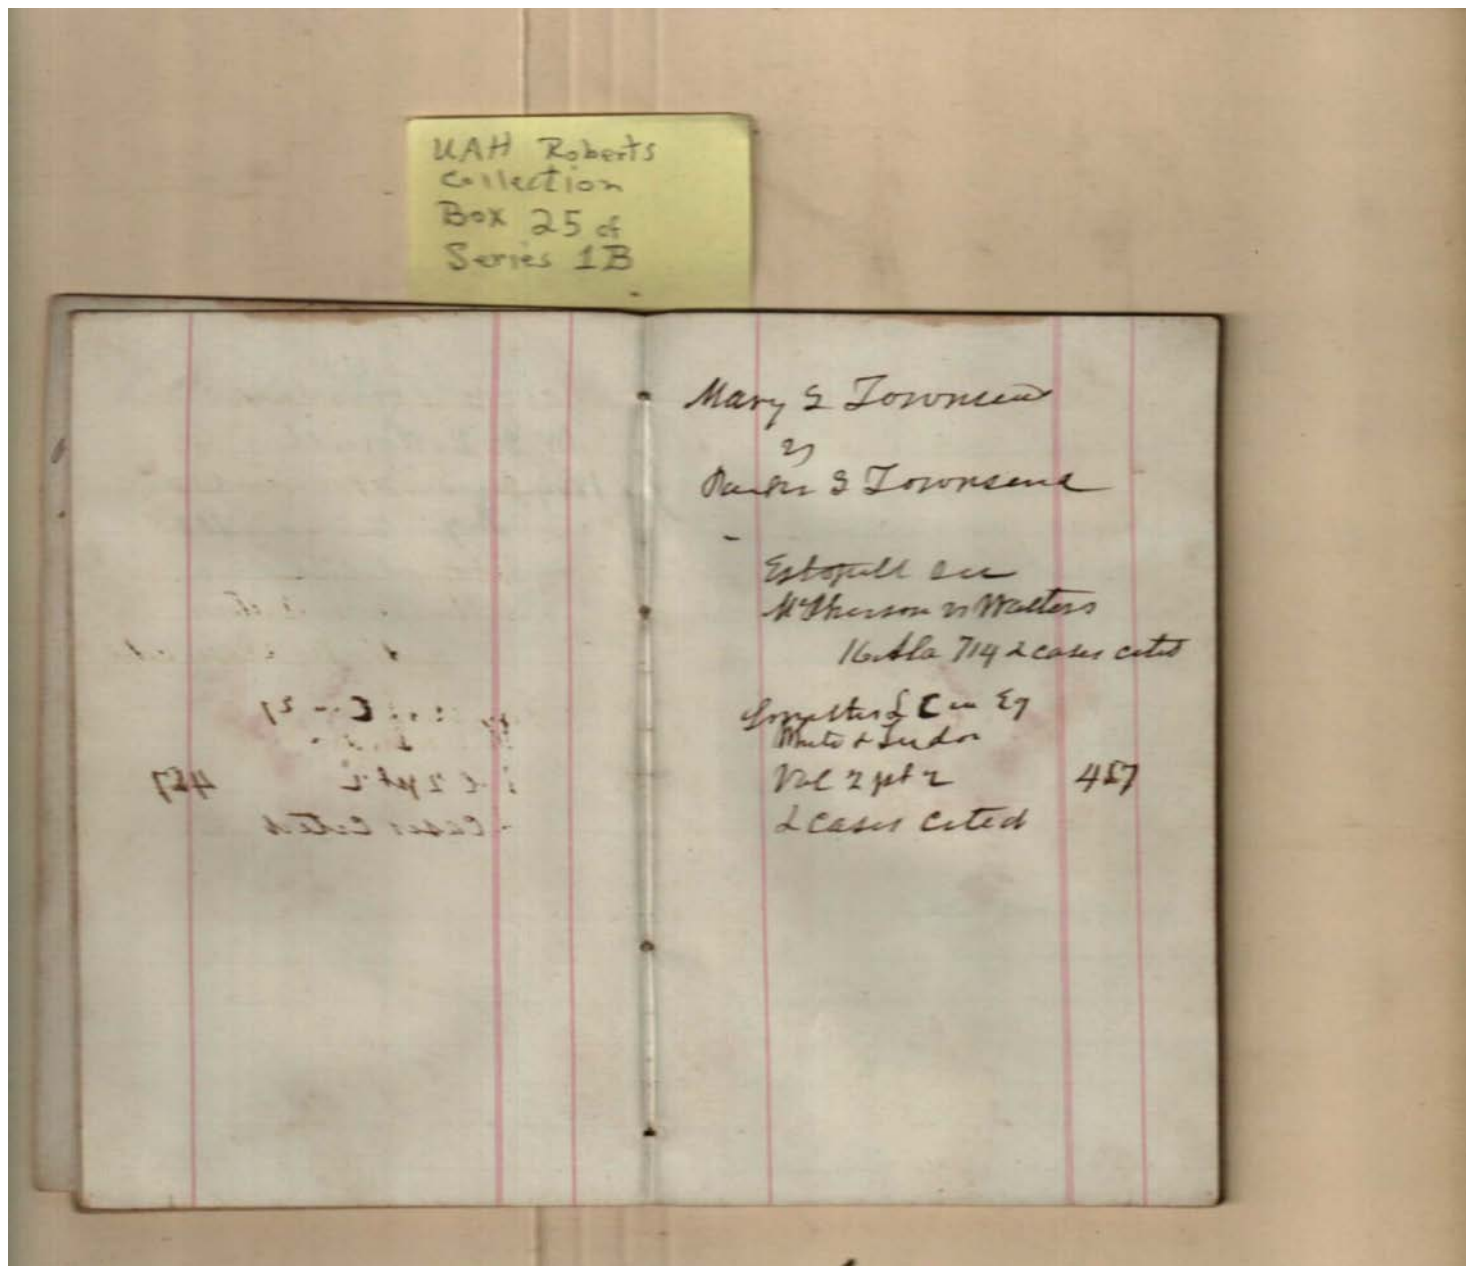 UAH Roberts
Collection
Box 25 of
Series 1B
Mary S Townsend
vs
S Townsend
Estopell see
McPherson vs Walters
16 Ala 714 & cases cited
L C in Eq
White & Tudor
Vol 2 pt 2 457
& cases cited